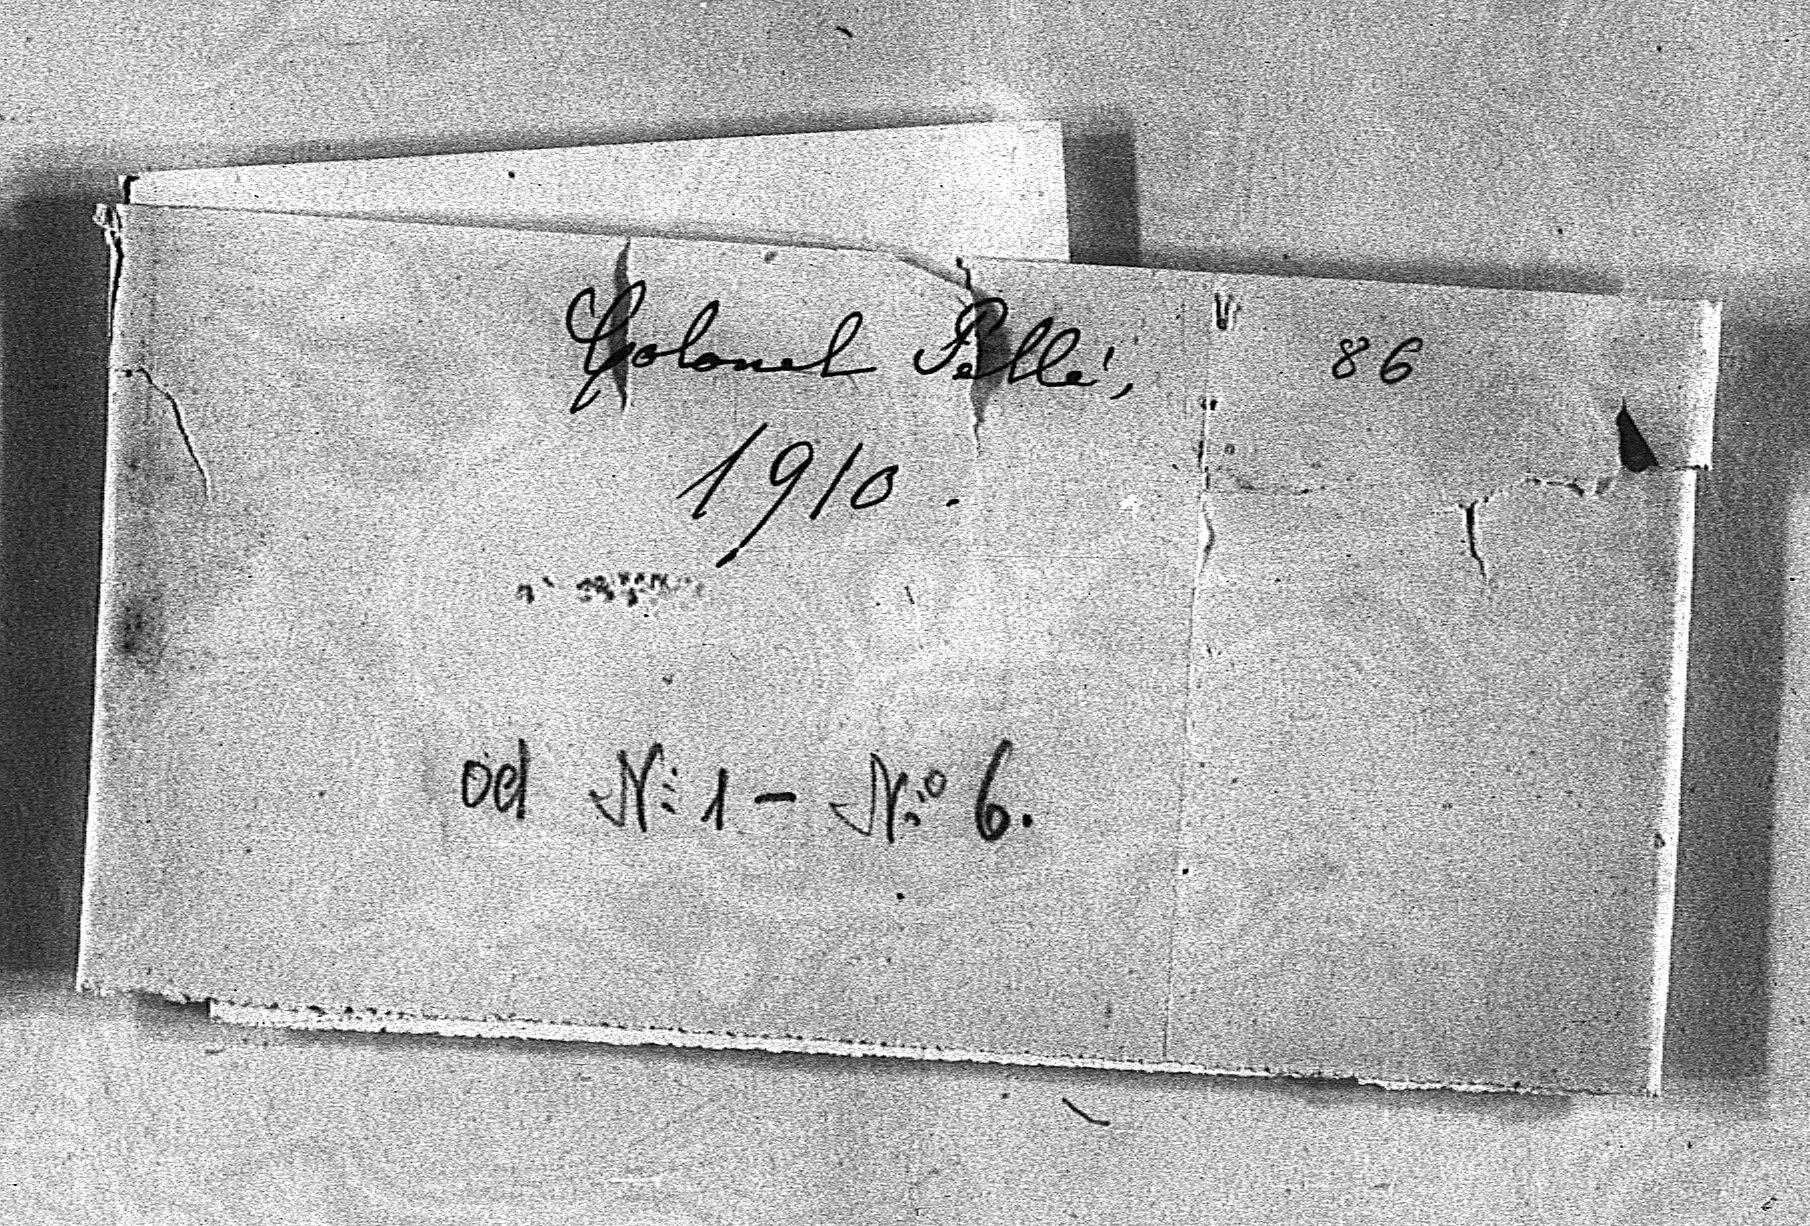 Colonel Pellé, 86
1910.
od No: 1 - No: 6.